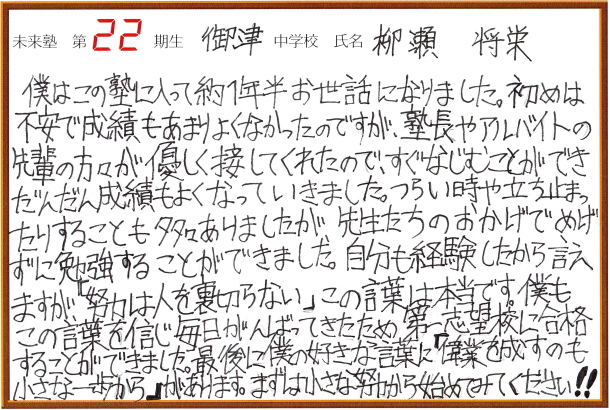 未来塾 第22期生 御津中学校 氏名 柳瀬 将栄
僕はこの塾に入って約1年半お世話になりました。初めは
不安で成績もあまりよくなかったのですが、塾長やアルバイトの
先輩の方々が優しく接してくれたので、すぐなじむことができ
だんだん成績もよくなっていきました。つらい時や立ち止まっ
たりすることも多々ありましたが先生たちのおかげでめげ
ずに勉強することができました。自分も経験したから言え
ますが「努力は人を裏切らない」この言葉は本当です。僕も
この言葉を信じ毎日がんばってきたため、第一志望校に合格
することができました。最後に僕の好きな言葉に『偉業を成すのも
小さな一歩から』があります。まずは小さな努力から始めてみてください!!